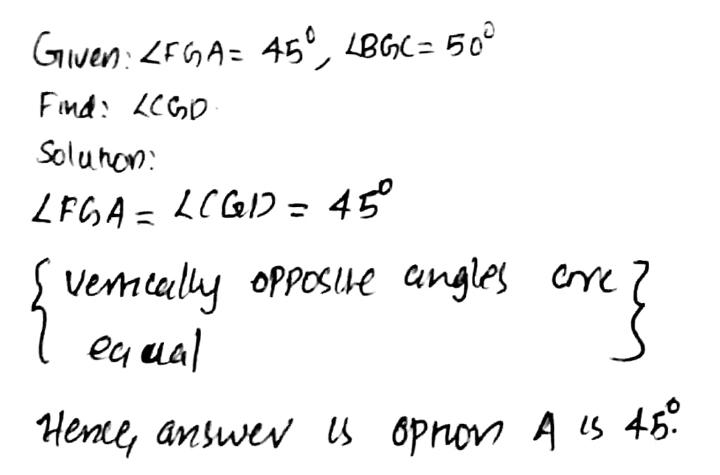 Given: ∠FGA = 45°, ∠BGC = 50°
Find: ∠CGD
Solution:
∠FGA = ∠CGD = 45°
{ vertically opposite angles are }
equal
Hence, answer is option A is 45°.